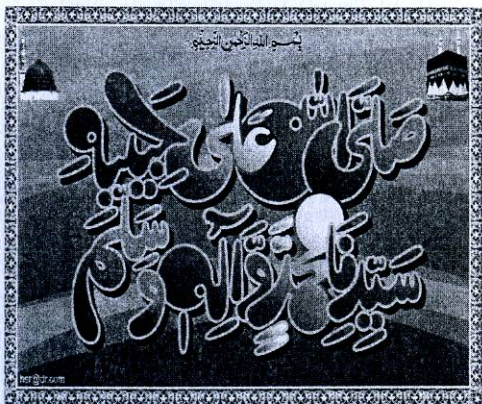 بِسْمِ اللهِ الرَّحْمٰنِ الرَّحِيْمِ
صَلَّى اللهُ عَلٰى حَبِيْبِهٖ
سَيِّدِنَا مُحَمَّدٍ وَّاٰلِهٖ وَسَلَّمَ